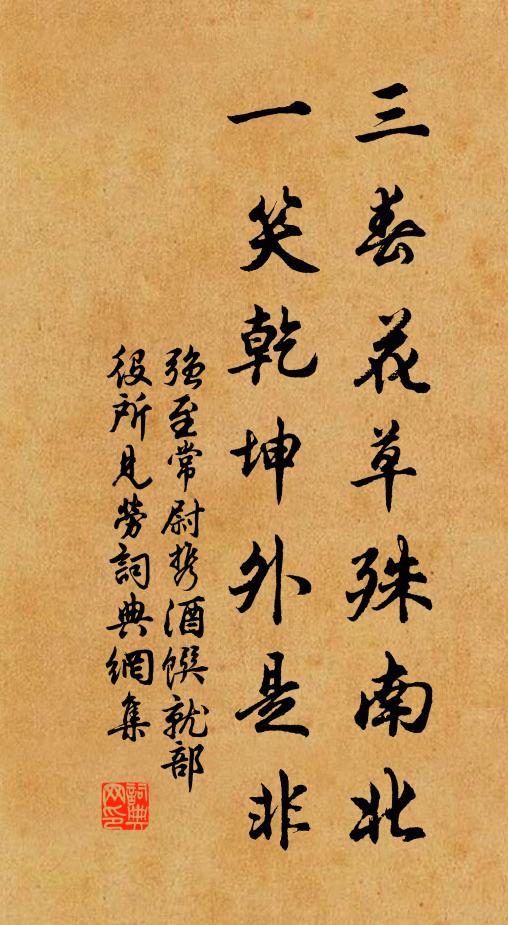 三春花草殊南北
一笑乾坤外是非
强至常尉携酒馔就部
役所見勞詞典網集
詞典網印